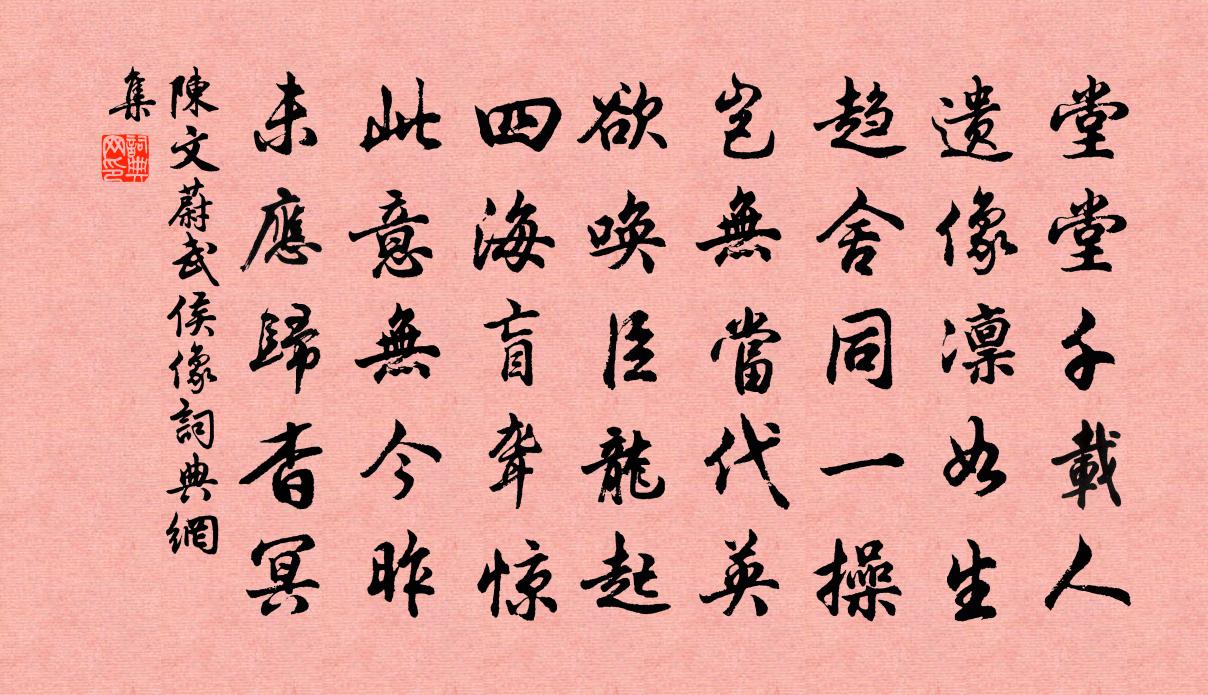 堂堂千載人
遗像凛如生
趋舍同一操
岂無當代英
欲唤臣龍起
四海盲聋惊
此意無今昨
未應歸杳冥
陳文蔚武侯像詞典網
集
詞典
网印